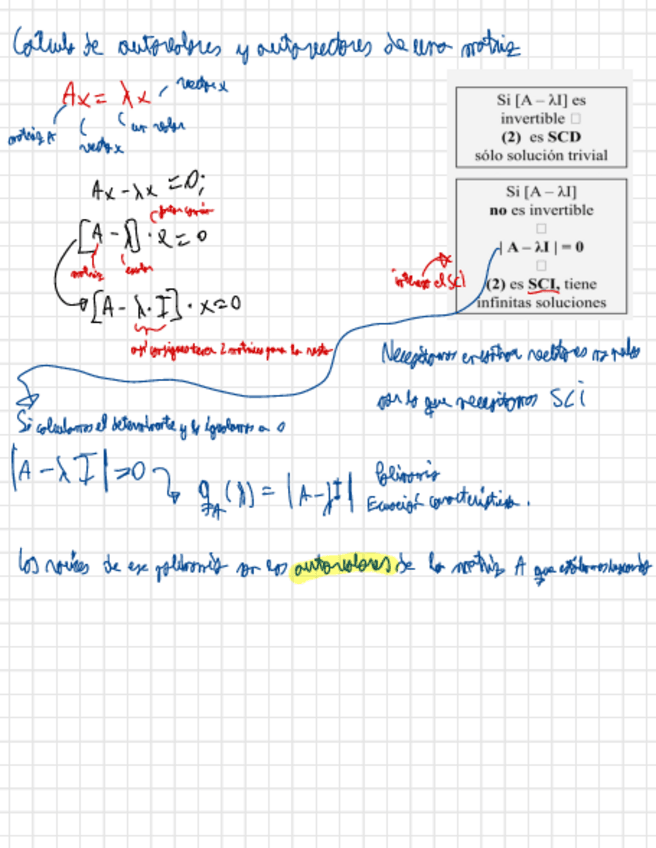 Calculo de autovalores y autovectores de una matriz
Ax = λx
vector x
matriz A
un valor
vector x
Si [A – λI] es
invertible □
(2) es SCD
sólo solución trivial
Ax - λx = 0;
factor común
[A - λ] · x = 0
matriz
escalar
[A - λ·I] · x = 0
así consigues tener 2 matrices para la resta
Si [A – λI]
no es invertible
□
| A – λI | = 0
□
(2) es SCI, tiene
infinitas soluciones
interesa el SCI
Necesitamos encontrar vectores no nulos
por lo que necesitamos SCI
Si calculamos el determinante y lo igualamos a 0
|A - λI| = 0
q_A(λ) = |A - λI|
Polinomio
Ecuación característica.
Las raíces de ese polinomio son los autovalores de la matriz A que estábamos buscando